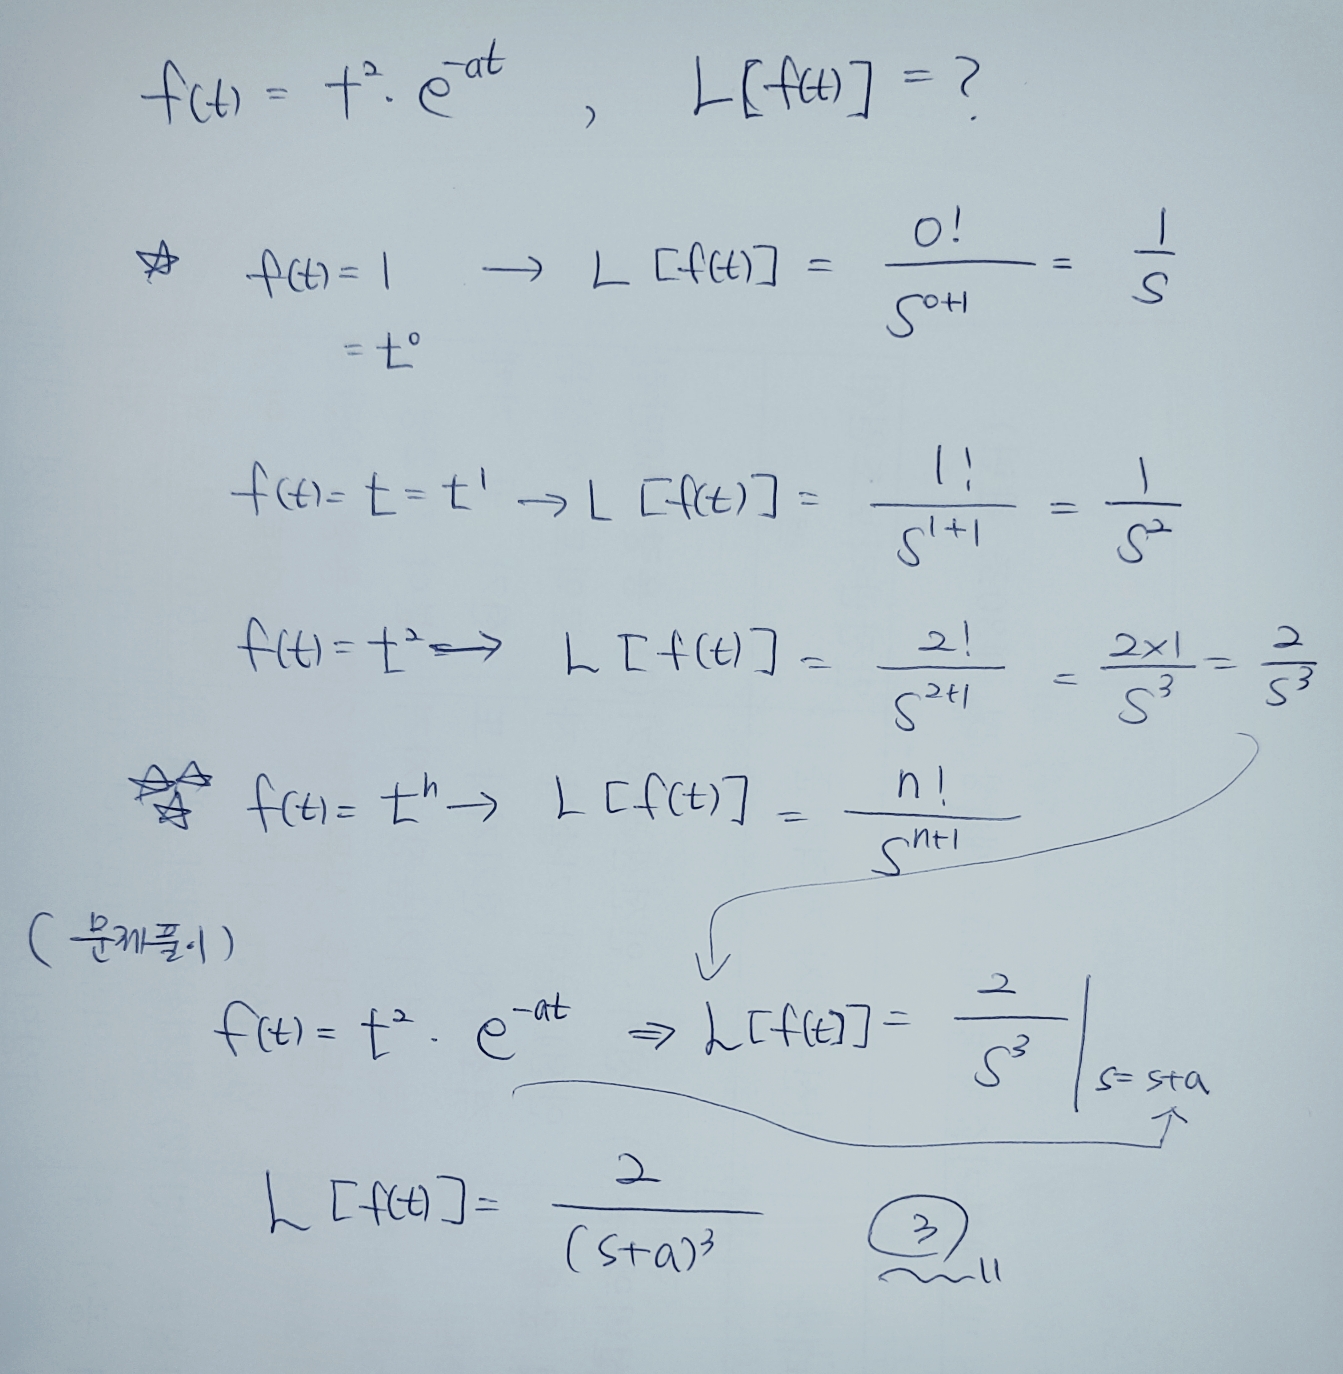 f(t) = t². e^-at , L[f(t)] = ?
☆ f(t) = 1 → L [f(t)] = 0! / S^0+1 = 1 / S
= t⁰
f(t) = t = t¹ → L [f(t)] = 1! / S^1+1 = 1 / S²
f(t) = t² → L [f(t)] = 2! / S^2+1 = 2×1 / S³ = 2 / S³
☆☆☆ f(t) = tⁿ → L [f(t)] = n! / S^n+1
(문제풀이)
f(t) = t² . e^-at ⇒ L[f(t)] = 2 / S³ | s= s+a
L [f(t)] = 2 / (s+a)³ ③